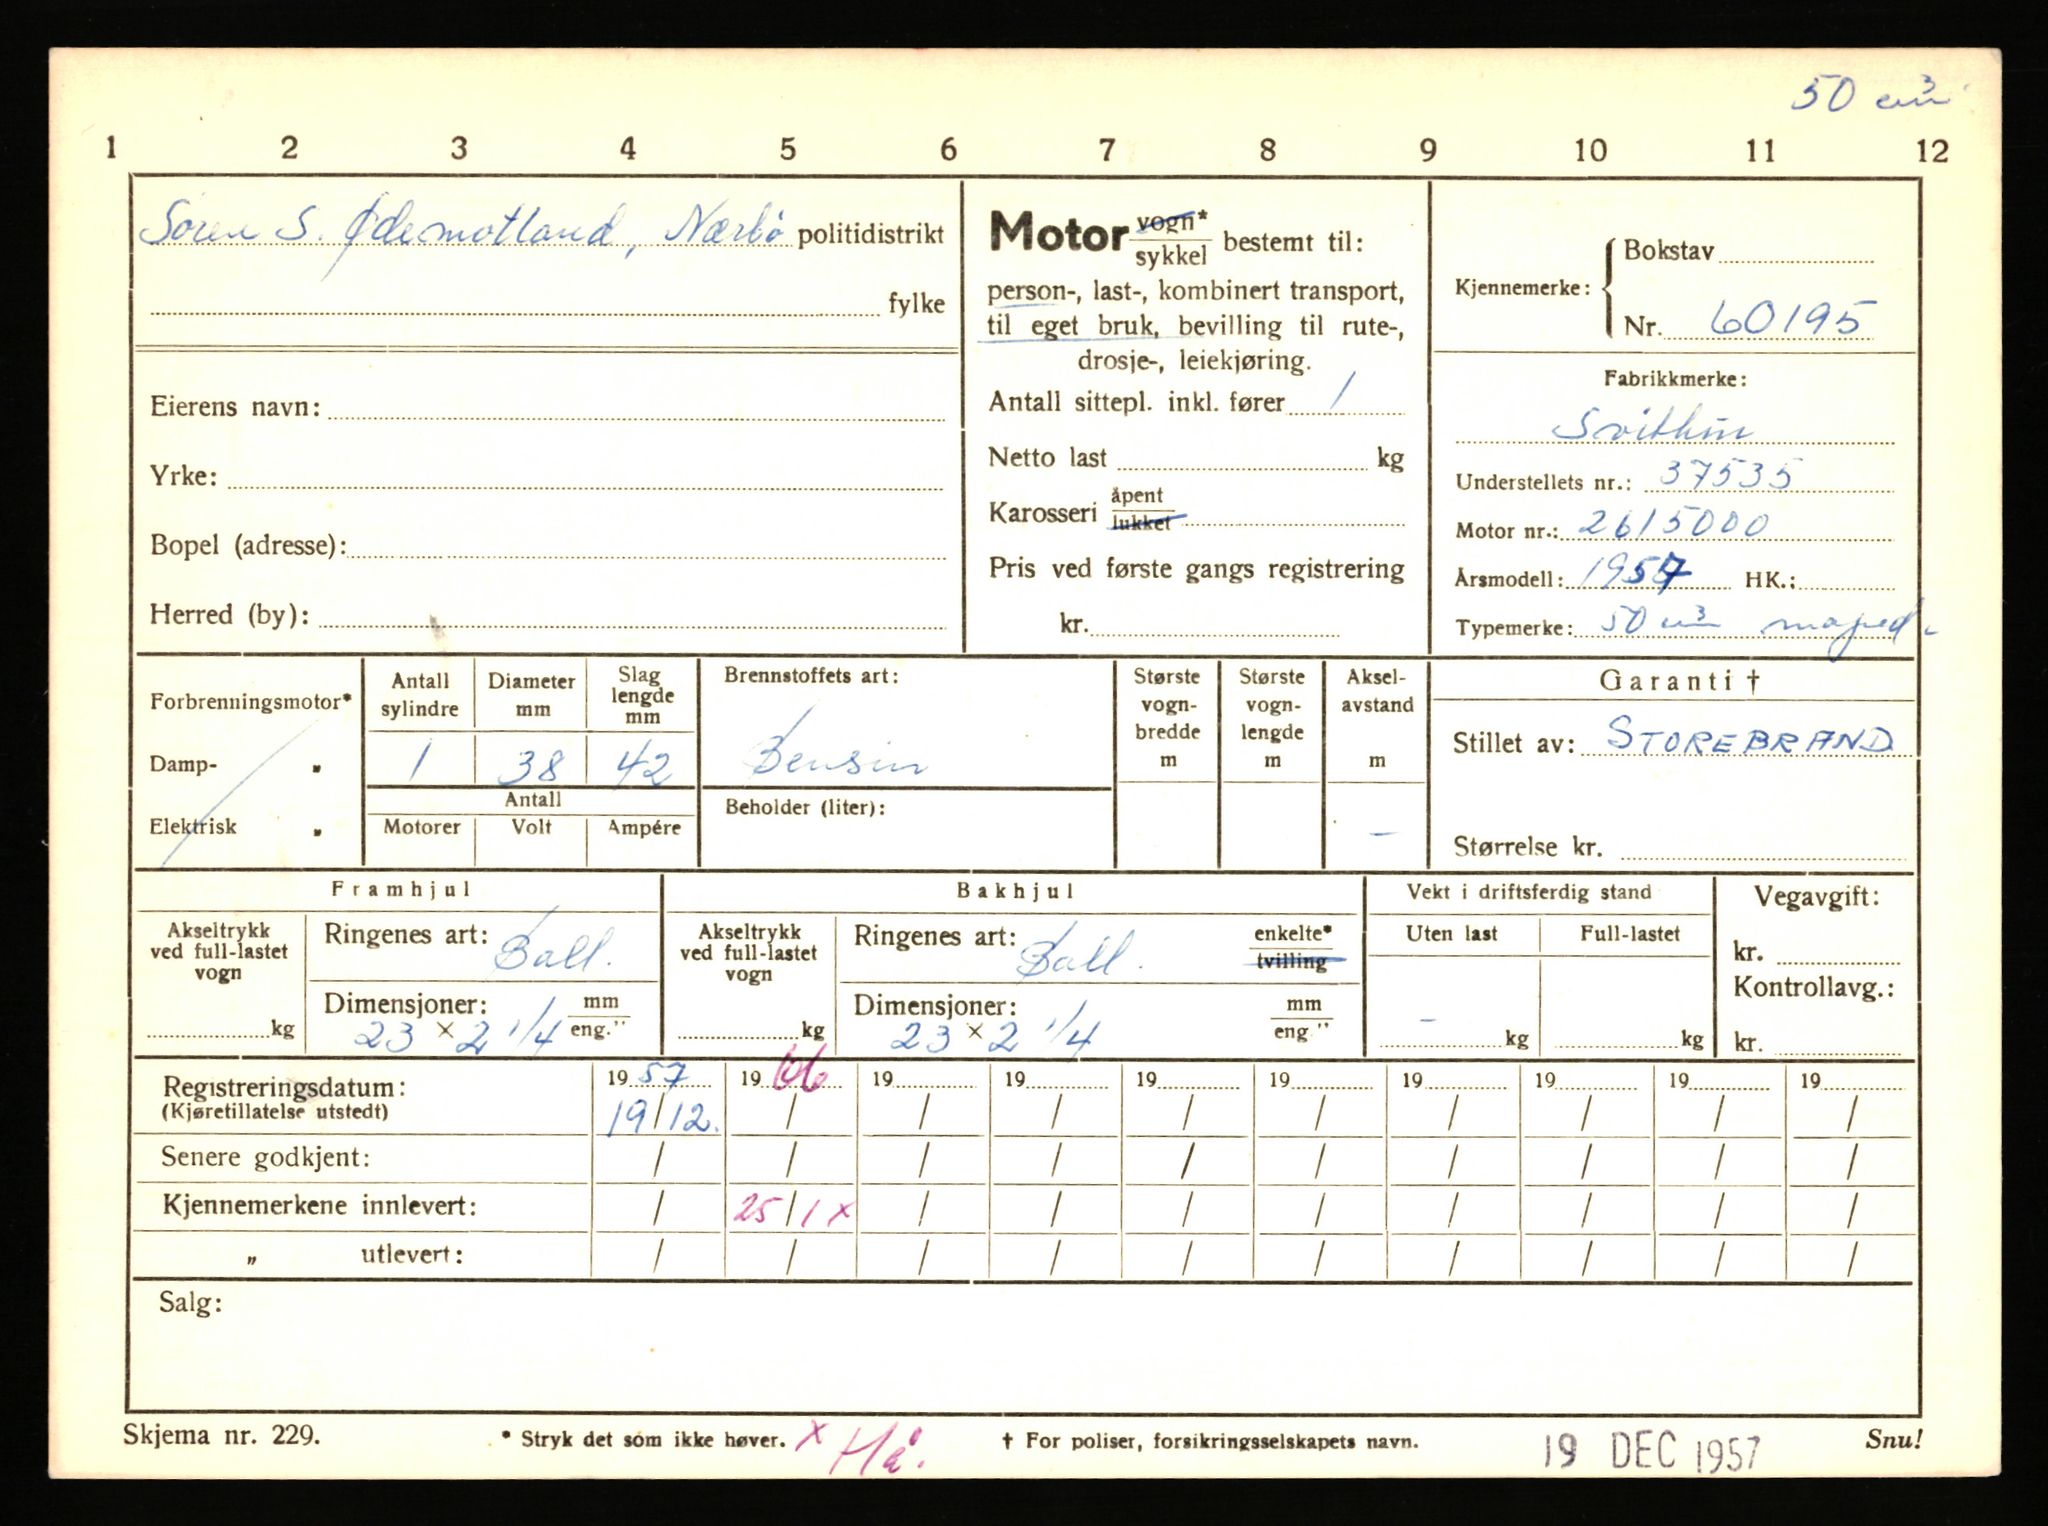 50 cm³
1 2 3 4 5 6 7 8 9 10 11 12
Søren S. Ødemotland, Nærbø politidistrikt
fylke
Eierens navn:
Yrke:
Bopel (adresse):
Herred (by):
Motor vogn* sykkel bestemt til:
person-, last-, kombinert transport,
til eget bruk, bevilling til rute-,
drosje-, leiekjøring.
Antall sittepl. inkl. fører 1
Netto last kg
Karosseri åpent lukket
Pris ved første gangs registrering
kr.
Kjennemerke: Bokstav
Nr. 60195
Fabrikkmerke:
Svithun
Understellets nr.: 37535
Motor nr.: 2615000
Årsmodell: 1957 HK.:
Typemerke: 50 cm³ moped.
Forbrenningsmotor*
Damp- „
Elektrisk „
Antall sylindre
1
Diameter mm
38
Slag lengde mm
42
Antall
Motorer Volt Ampére
Brennstoffets art:
Bensin
Beholder (liter):
Største vogn- bredde m
Største vogn- lengde m
Aksel- avstand m
-
Garanti †
Stillet av: STOREBRAND
Størrelse kr.
Framhjul
Akseltrykk ved full-lastet vogn
kg
Ringenes art: Ball.
Dimensjoner: mm eng."
23 x 2 1/4
Bakhjul
Akseltrykk ved full-lastet vogn
kg
Ringenes art: Ball. enkelte* tvilling
Dimensjoner: mm eng."
23 x 2 1/4
Vekt i driftsferdig stand
Uten last Full-lastet
- kg kg
Vegavgift:
kr.
Kontrollavg.:
kr.
Registreringsdatum: 1957 1966 19 19 19 19 19 19 19 19
(Kjøretillatelse utstedt) 19/12. / / / / / / / / /
Senere godkjent: / / / / / / / / / /
Kjennemerkene innlevert: / 25/1 x / / / / / / / /
„ utlevert: / / / / / / / / / /
Salg:
Skjema nr. 229. * Stryk det som ikke høver. x Hå. † For poliser, forsikringsselskapets navn. 19 DEC 1957 Snu!